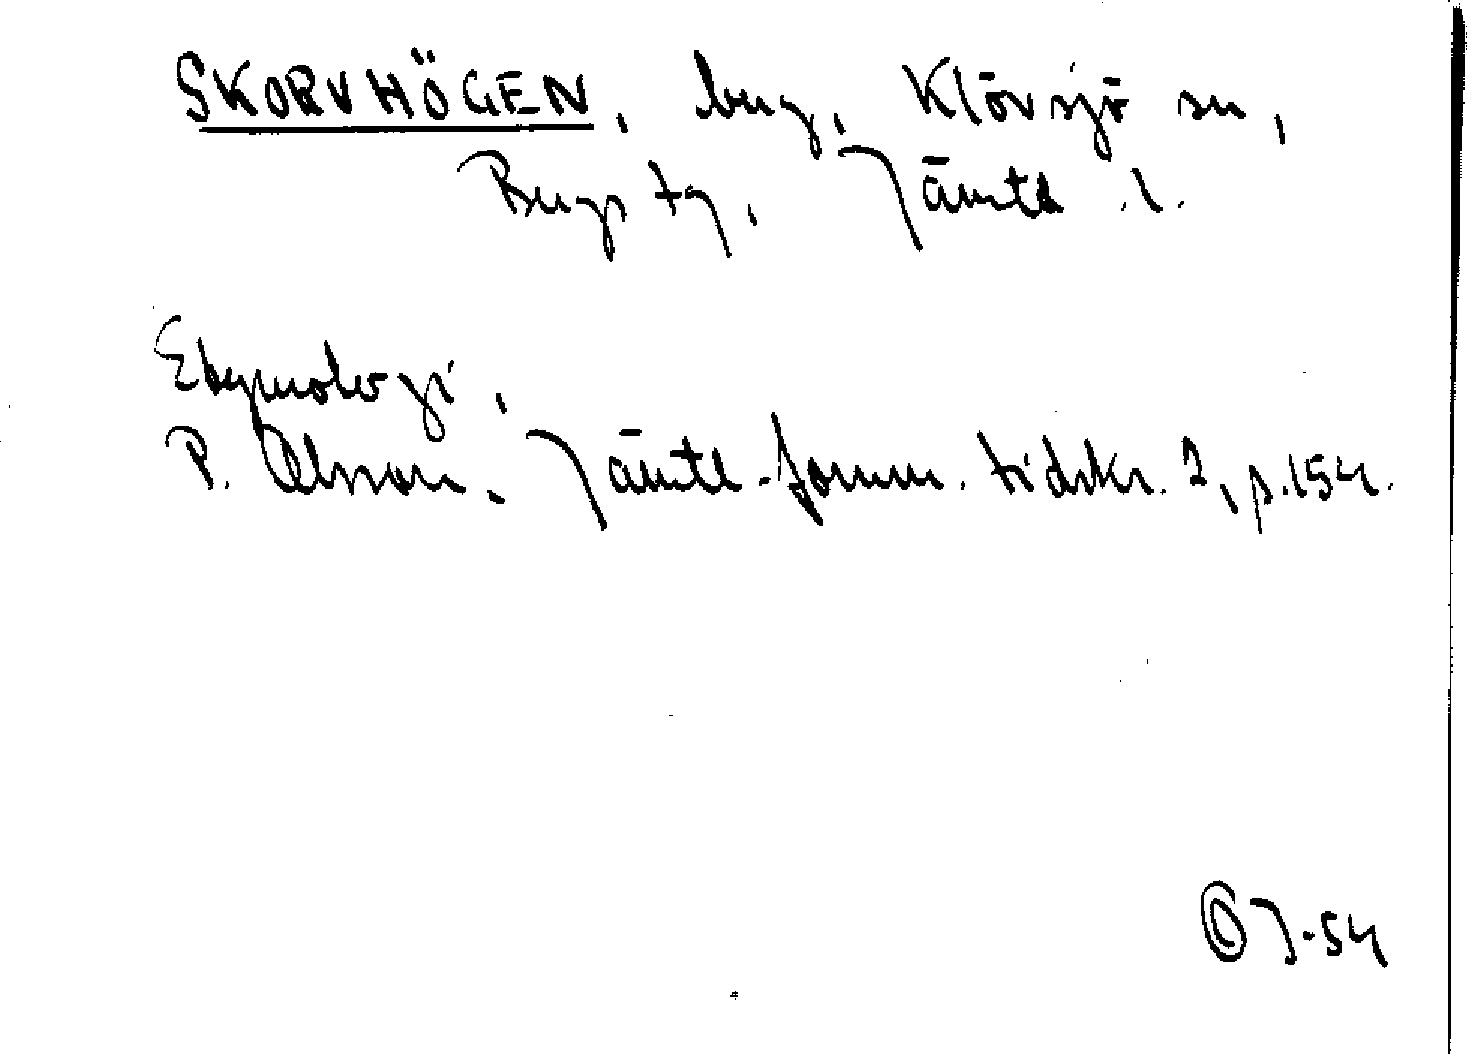 SKORVHÖGEN, berg, Klövsjö sn,
Bergs tg, Jämtl. l.
Etymologi,
P. Olsson. Jämtl. fornm. tidskr. 2, p. 154.
J-54